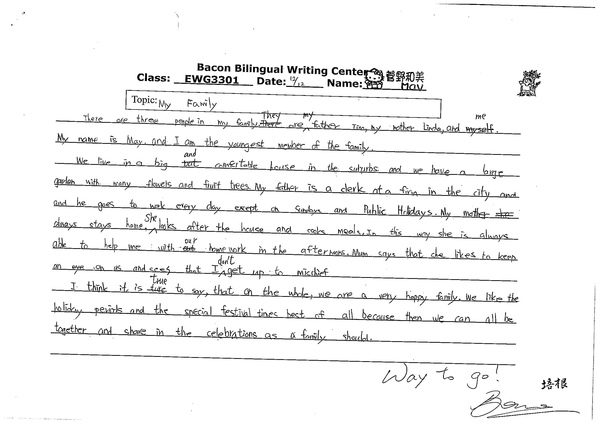 Bacon Bilingual Writing Center
Class: EWG3301 Date: 12/12 Name: 菅野和美 May
Topic: My Family
They my me
There are three people in my family. There are father Tom, my mother Linda, and myself.
My name is May and I am the youngest member of the family.
and
We live in a big but comfortable house in the suburbs and we have a large
garden with many flowers and fruit trees. My father is a clerk at a firm in the city and
and he goes to work every day except on Sundays and Public Holidays. My mother
She
always stays home. looks after the house and cooks meals. In this way she is always
our
able to help me with homework in the afternoons. Mum says that she likes to keep
don't
an eye on us and sees that I get up to mischief
true
I think it is to say, that on the whole, we are a very happy family. We like the
holiday periods and the special festival times best of all because then we can all be
together and share in the celebrations as a family should.
Way to go!
培根